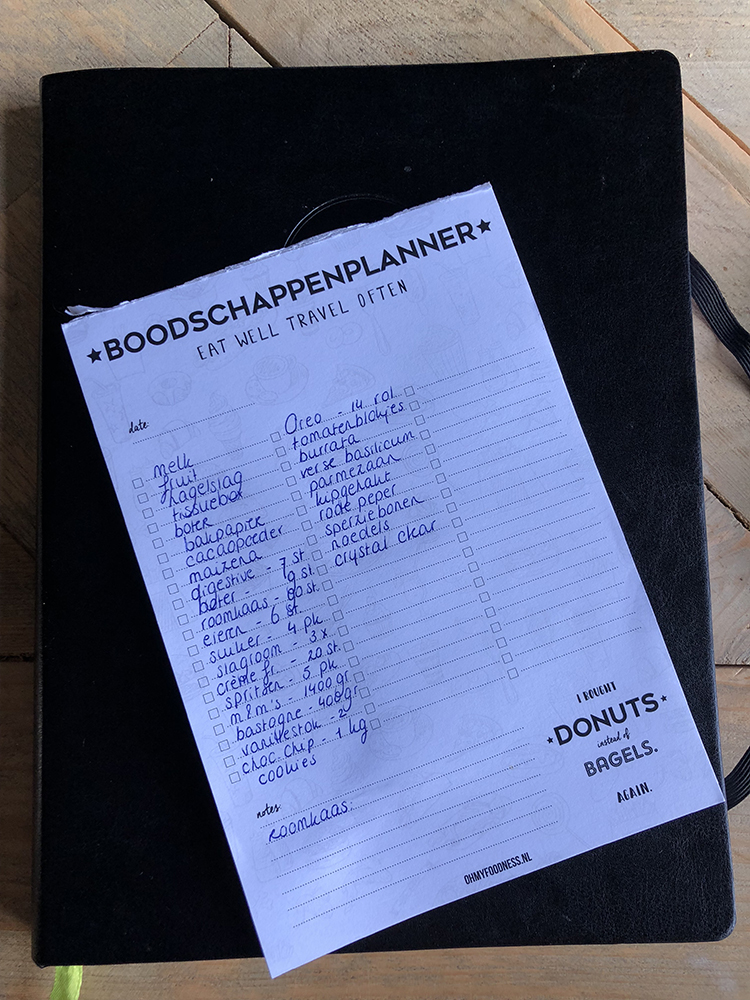 ★BOODSCHAPPENPLANNER★
EAT WELL TRAVEL OFTEN
date:
melk
fruit
hagelslag
tissuebox
boter
bakpapier
cacaopoeder
maizena
digestive - 7 st.
boter - st.
roomkaas - st.
eieren - 6 st.
suiker - 4 pk
slagroom - 3x
crème fr. - 20 st.
spritsen - 5 pk
m&m's - 1400 gr
bastogne - 400gr
vanillestok - 2
choc. chip - 1 kg
cookies
Oreo - 14 rol
tomatenblokjes
burrata
verse basilicum
parmezaan
kipgehakt
rode peper
sperziebonen
noedels
crystal clear
notes:
roomkaas:
I BOUGHT
★DONUTS★
instead of
BAGELS.
AGAIN.
OHMYFOODNESS.NL